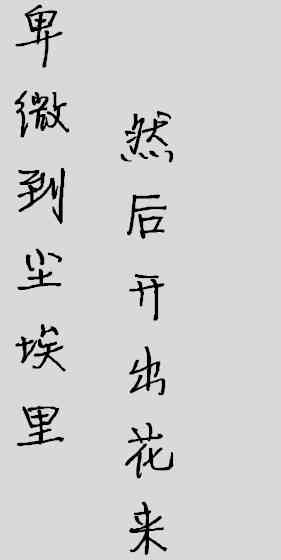 卑微到尘埃里
然后开出花来